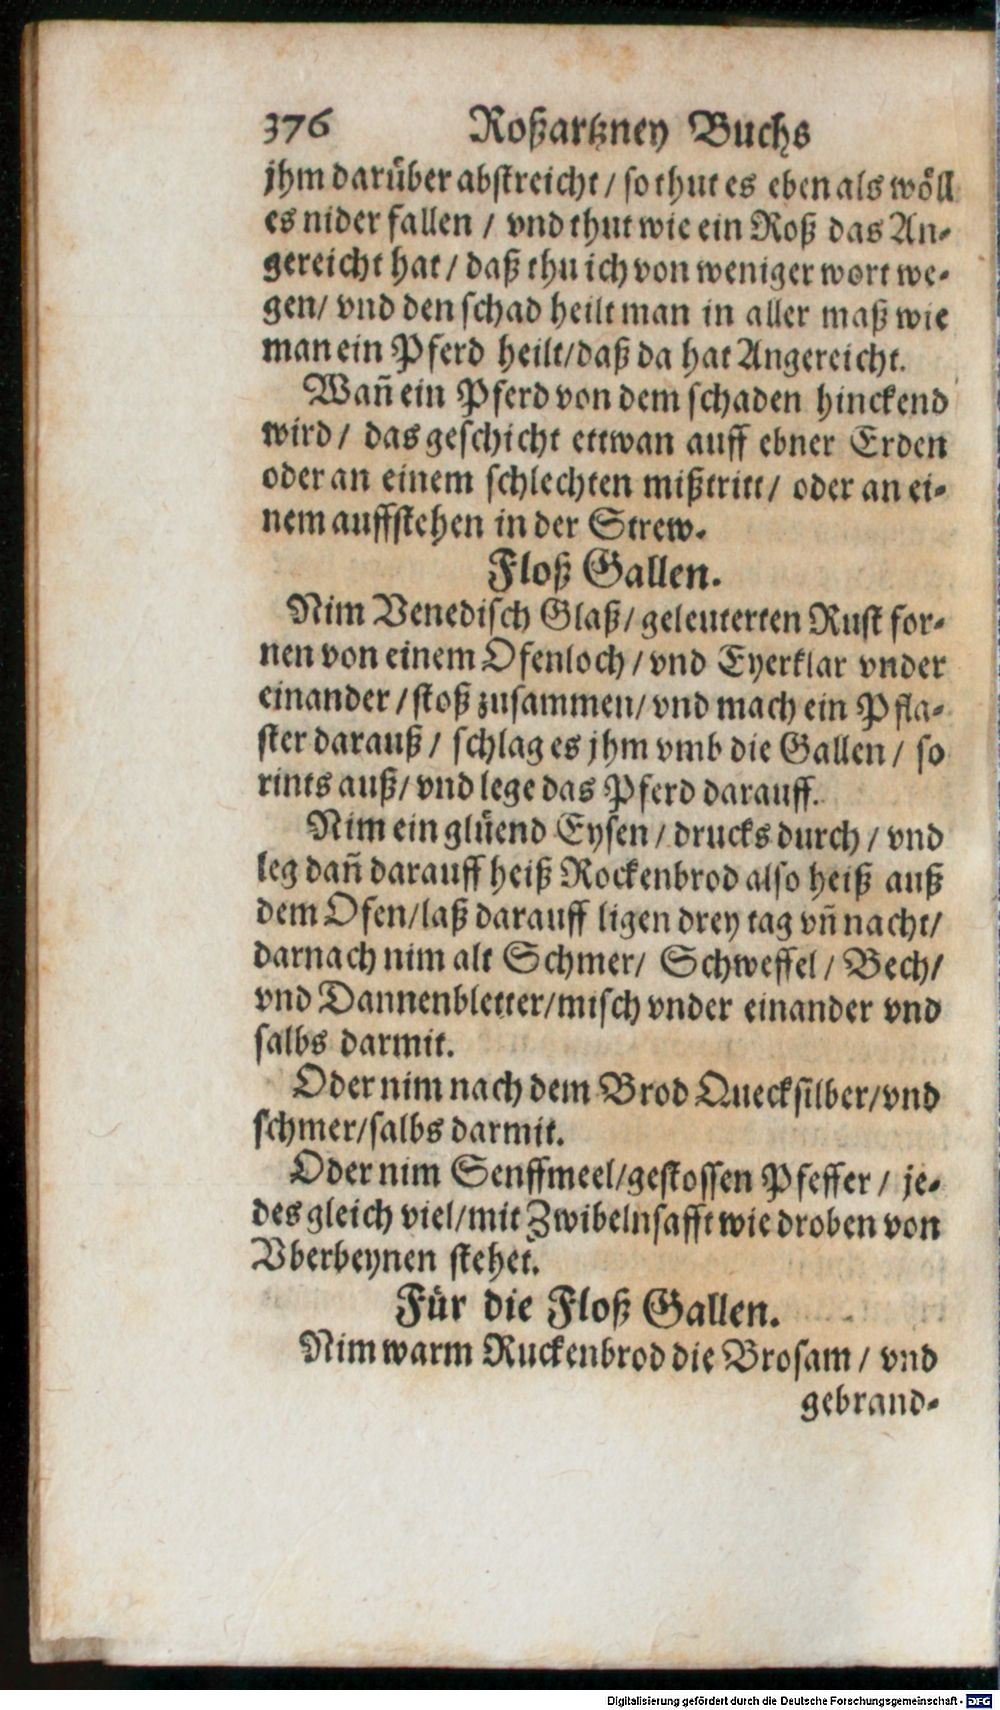 376 Roßartzney Buchs
jhm darüber abstreicht / so thut es eben als wöll
es nider fallen / vnd thut wie ein Roß das An-
gereicht hat / daß thu ich von weniger wort we-
gen / vnd den schad heilt man in aller maß wie
man ein Pferd heilt / daß da hat Angereicht.
Wañ ein Pferd von dem schaden hinckend
wird / das geschicht ettwan auff ebner Erden
oder an einem schlechten mißtritt / oder an ei-
nem auffstehen in der Strew.
Floß Gallen.
Nim Venedisch Glaß / geleuterten Rust for-
nen von einem Ofenloch / vnd Eyerklar vnder
einander / stoß zusammen / vnd mach ein Pfla-
ster darauß / schlag es jhm vmb die Gallen / so
rints auß / vnd lege das Pferd darauff.
Nim ein glüend Eysen / drucks durch / vnd
leg dañ darauff heiß Rockenbrod also heiß auß
dem Ofen / laß darauff ligen drey tag vñ nacht /
darnach nim alt Schmer / Schweffel / Bech /
vnd Dannenbletter / misch vnder einander vnd
salbs darmit.
Oder nim nach dem Brod Quecksilber / vnd
schmer / salbs darmit.
Oder nim Senffmeel / gestossen Pfeffer / je-
des gleich viel / mit Zwibelnsafft wie droben von
Vberbeynen stehet.
Für die Floß Gallen.
Nim warm Ruckenbrod die Brosam / vnd
gebrand-
Digitalisierung gefördert durch die Deutsche Forschungsgemeinschaft - DFG